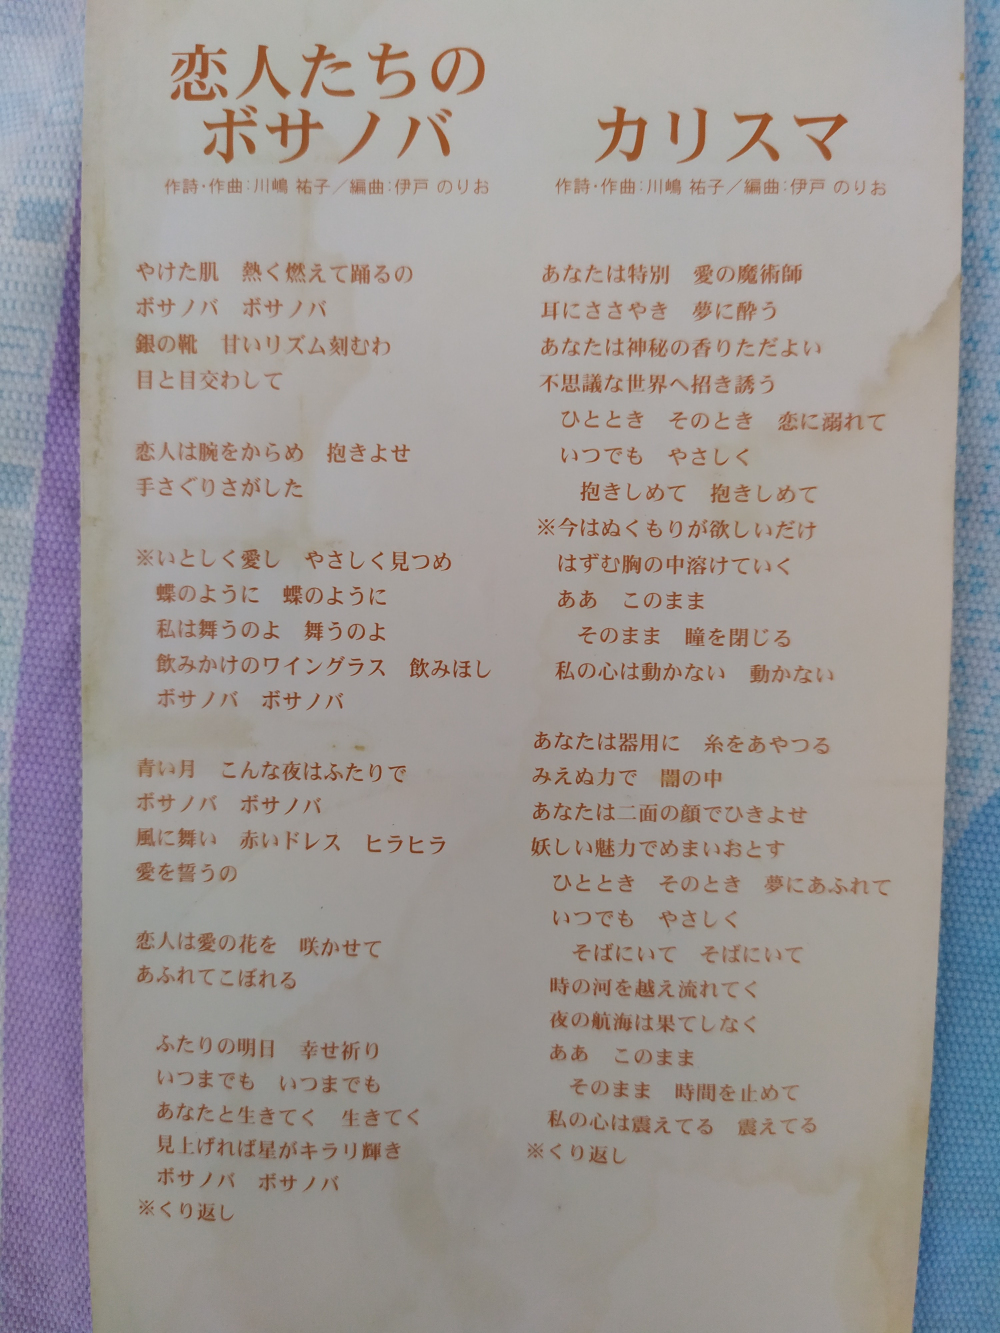 恋人たちの
ボサノバ
作詩・作曲:川嶋 祐子／編曲:伊戸 のりお
やけた肌　熱く燃えて踊るの
ボサノバ　ボサノバ
銀の靴　甘いリズム刻むわ
目と目交わして
恋人は腕をからめ　抱きよせ
手さぐりさがした
※いとしく愛し　やさしく見つめ
蝶のように　蝶のように
私は舞うのよ　舞うのよ
飲みかけのワイングラス　飲みほし
ボサノバ　ボサノバ
青い月　こんな夜はふたりで
ボサノバ　ボサノバ
風に舞い　赤いドレス　ヒラヒラ
愛を誓うの
恋人は愛の花を　咲かせて
あふれてこぼれる
ふたりの明日　幸せ祈り
いつまでも　いつまでも
あなたと生きてく　生きてく
見上げれば星がキラリ輝き
ボサノバ　ボサノバ
※くり返し
カリスマ
作詩・作曲:川嶋 祐子／編曲:伊戸 のりお
あなたは特別　愛の魔術師
耳にささやき　夢に酔う
あなたは神秘の香りただよい
不思議な世界へ招き誘う
ひととき　そのとき　恋に溺れて
いつでも　やさしく
抱きしめて　抱きしめて
※今はぬくもりが欲しいだけ
はずむ胸の中溶けていく
ああ　このまま
そのまま　瞳を閉じる
私の心は動かない　動かない
あなたは器用に　糸をあやつる
みえぬ力で　闇の中
あなたは二面の顔でひきよせ
妖しい魅力でめまいおとす
ひととき　そのとき　夢にあふれて
いつでも　やさしく
そばにいて　そばにいて
時の河を越え流れてく
夜の航海は果てしなく
ああ　このまま
そのまま　時間を止めて
私の心は震えてる　震えてる
※くり返し